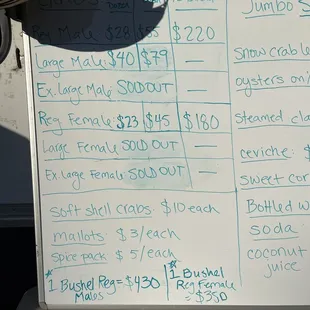 Jumbo S
Reg Male $28 $55 $220
Large Male $40 $79 —
Ex. large Male SOLD OUT —
Reg Female $23 $45 $180
Large Female SOLD OUT —
Ex large Female SOLD OUT —
soft shell crabs $10 each
mallots $3/each
spice pack $5/each
1 Bushel Reg = $430
Males
1 Bushel
Reg Female
= $350
snow crab le
oysters on
steamed cla
ceviche: $
sweet cor
Bottled w
soda
coconut
juice